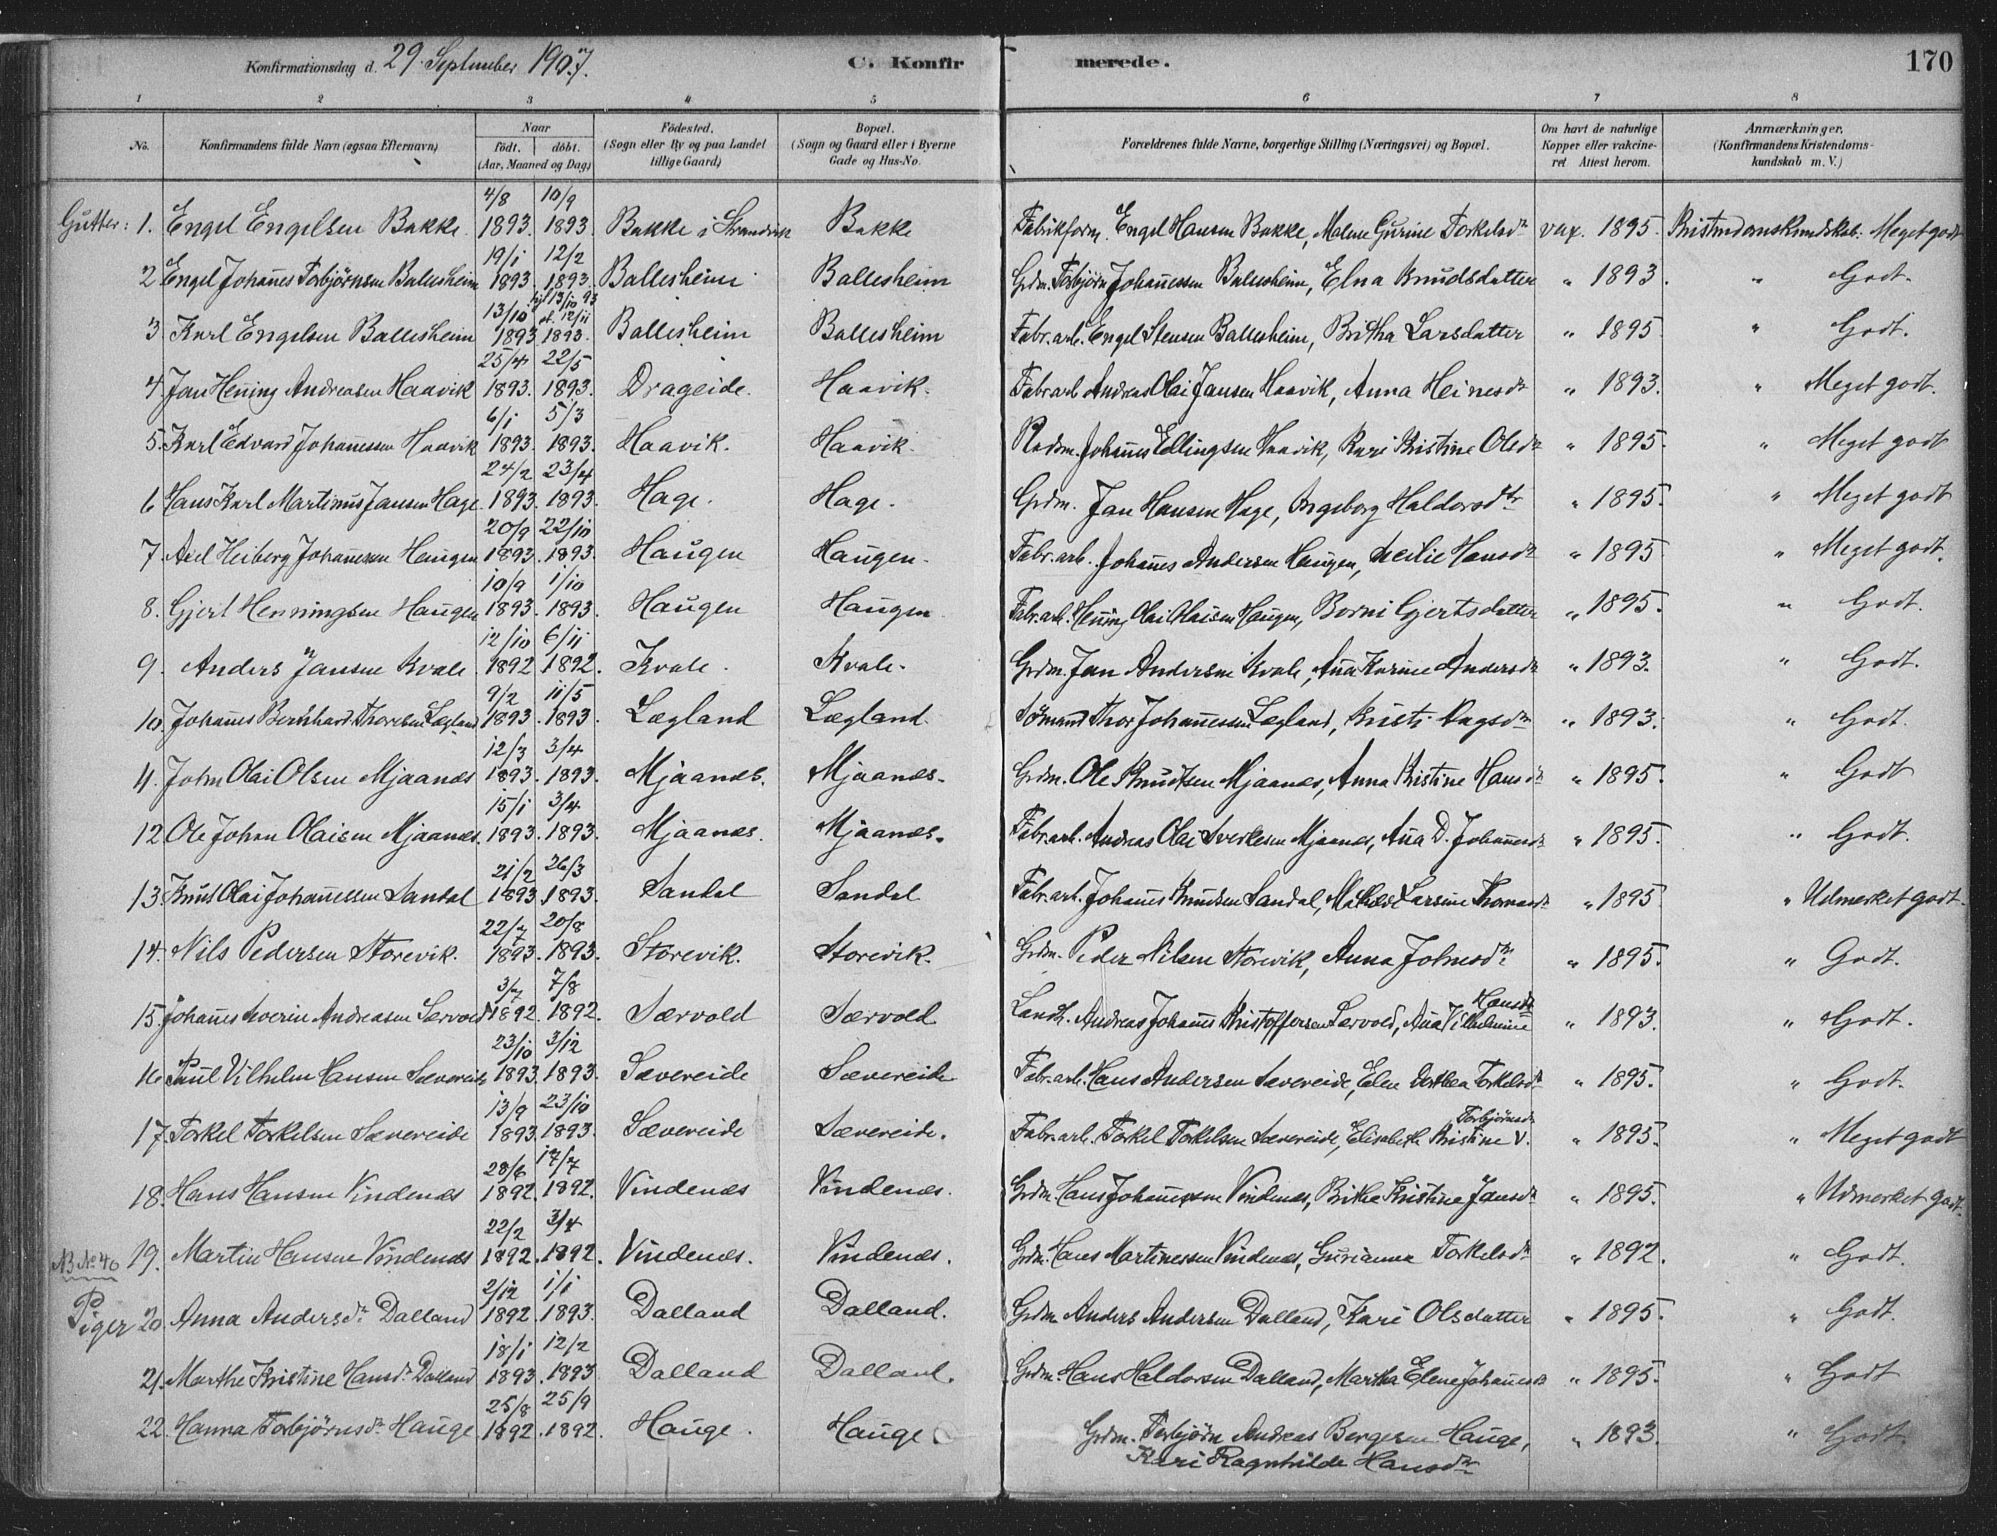 Konfirmationsdag d. 29. September 1907.
C. Konfirmerede.
170
1 2 3 4 5 6 7 8
No. Konfirmandens fulde Navn (ogsaa Efternavn) Naar født. døbt. (Aar, Maaned og Dag) Fødested. (Sogn eller By og paa Landet tillige Gaard) Bopæl. (Sogn og Gaard eller i Byerne Gade og Hus-No. Forældrenes fulde Navne, borgerlige Stilling (Næringsvei) og Bopæl. Om havt de naturlige Kopper eller vakcineret Attest herom. Anmærkninger. (Konfirmandens Kristendomskundskab m. V.)
Gutter: 1. Engel Engelsen Bakke 4/8 1893. 10/9 1893. Bakke i Strandvik Bakke Fabrikform. Engel Hansen Bakke, Malene Gurine Torkelsdr vax. 1895. Kristendomskundskab: Meget godt
2 Engel Johannes Torbjørnsen Ballesheim 19/1 1893. 12/2 1893. Ballesheim Ballesheim Grdm. Torbjørn Johannessen Ballesheim, Elna Knudsdatter " 1893. " Godt.
3. Karl Engelsen Ballesheim 13/10 1893 hj. 13/10 93 st. 12/11 1893. Ballesheim Ballesheim Fabr. arb. Engel Stensen Ballesheim, Britha Larsdatter " 1895 " Godt.
4. Jan Hening Andreasen Haavik 25/4 1893. 22/5 1893. Drageide. Haavik. Fabr arb Andreas Olai Jansen Haavik, Anna Heinesdr " 1893. " Meget godt.
5. Karl Edvard Johannessen Haavik 6/1 1893. 5/3 1893. Haavik. Haavik. Johannes Ellingsen Haavik, Kari Kristine Olsdr " 1895. " Meget godt
6 Hans Karl Martinus Jansen Hage 24/2 1893. 23/4 1893. Hage. Hage. Grdm. Jan Hansen Hage, Ingeborg Haldorsdtr " 1895. " Meget godt
7 Axel Heiberg Johannesen Haugen 20/9 1893. 22/10 1893. Haugen Haugen. Fabr. arb. Johannes Andersen Haugen, Cecilie Hansdr " 1895 " Meget godt.
8. Gjert Henningsen Haugen 10/9 1893. 1/10 1893. Haugen Haugen Fabr. arb. Hening Olai Olaisen Haugen, Berni Gjertsdatter " 1895. " Godt.
9. Anders Jansen Kvale 12/10 1892. 6/11 1892. Kvale. Kvale. Grdm. Jan Andersen Kvale, Anna Karine Andersdr " 1893. " Godt.
10. Johannes Bernhard Thoresen Lægland 9/2 1893. 11/5 1893. Lægland Lægland. Sømand Thor Johannessen Lægland, Kristi Aagsdr " 1893. " Godt.
11. John Olai Olsen Mjaanes 12/3 1893. 3/4 1893. Mjaanes. Mjaanes. Grdm. Ole Knudsen Mjaanes, Anna Kristine Hansdr " 1895. " Godt
12 Ole Johan Olaisen Mjaanes. 15/1 1893. 3/4 1893. Mjaanes. Mjaanes. Fabr. arb. Andreas Olai Sverkesen Mjaanes, Anna D. Johannesdr " 1895. " Godt.
13. Knut Olai Johannessen Sandal 21/2 1893. 26/3 1893. Sandal Sandal Fabr. arb. Johannes Knudsen Sandal, Larsine Thomasdr " 1895 " Udmerket godt.
14. Nils Pedersen Storevik. 22/7 1893. 20/8 1893. Storevik. Storevik. Grdm. Peder Nilsen Storevik, Anna Johnsdtr " 1895. " Godt.
15. Johannes Severin Andreasen Særvold 3/7 1892. 7/8 1892. Særvold Særvold Landh. Andreas Johannes Kristoffersen Særvold, Anna Vilhelmine Hansdr " 1893. " Godt.
16 Paul Vilhelm Hansen Sævereide 23/10 1893. 3/12 1893. Sævereide Sævereide Fabr. arb. Hans Andersen Sævereide, Elen Dorthea Torkelsdr " 1895. " Godt.
17. Torkel Torkelsen Sævereide 13/9 1893. 23/10 1893. Sævereide Sævereide. Fabr. arb. Torkel Torkelsen Sævereide, Elisabeth Kristine Torbjørnsdr " 1895. " Meget godt
18. Hans Hansen Vindenæs 28/6 1892. 17/7 1892. Vindenæs Vindenæs. Grdm. Hans Johannessen Vindenæs, Brithe Kristine Jansdr " 1895. " Udmerket godt.
NB No 40 19. Martin Hansen Vindenæs 22/2 1892. 3/4 1892. Vindenæs. Vindenæs. Grdm. Hans Martinessen Vindenæs, Gurianna Torkelsdr " 1892. " Godt.
Piger 20. Anna Andersdr Dalland 2/12 1892. 1/1 1893. Dalland Dalland. Grdm Anders Andersen Dalland, Kari Olsdatter " 1895. " Godt.
21. Marthe Kristine Hansdr Dalland 18/1 1893. 12/2 1893 Dalland Dalland. Grdm. Hans Haldorsen Dalland, Martha Elene Johannesdr " 1895. " Godt
22. Hanna Torbjørnsdr Hauge 25/8 1892. 25/9 1892. Hauge. Hauge. Grdm. Torbjørn Andreas Bergesen Hauge, " 1893. " Godt.
Kari Ragnhilde Hansdr